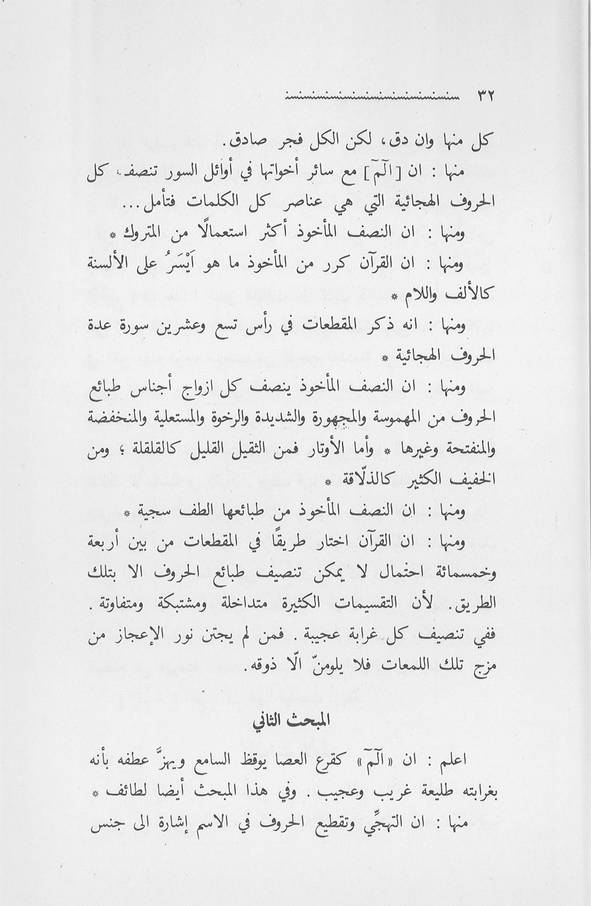 ٣٢
كل منها وان دق، لكن الكل فجر صادق.
منها : ان [الٓمٓ] مع سائر أخواتها في أوائل السور تنصف كل
الحروف الهجائية التي هي عناصر كل الكلمات فتأمل...
ومنها : ان النصف المأخوذ أكثر استعمالًا من المتروك *
ومنها : ان القرآن كرر من المأخوذ ما هو اَيْسَرُ على الألسنة
كالألف واللام *
ومنها : انه ذكر المقطعات في رأس تسع وعشرين سورة عدة
الحروف الهجائية *
ومنها : ان النصف المأخوذ ينصف كل ازواج أجناس طبائع
الحروف من المهموسة والمجهورة والشديدة والرخوة والمستعلية والمنخفضة
والمنفتحة وغيرها * وأما الأوتار فمن الثقيل القليل كالقلقلة ؛ ومن
الخفيف الكثير كالذلّاقة *
ومنها : ان النصف المأخوذ من طبائعها الطف سجية *
ومنها : ان القرآن اختار طريقًا في المقطعات من بين أربعة
وخمسمائة احتمال لا يمكن تنصيف طبائع الحروف الا بتلك
الطريق. لأن التقسيمات الكثيرة متداخلة ومشتبكة ومتفاوتة .
ففي تنصيف كل غرابة عجيبة . فمن لم يجتن نور الإعجاز من
مزج تلك اللمعات فلا يلومنّ الّا ذوقه.
المبحث الثاني
اعلم : ان «الٓمٓ» كقرع العصا يوقظ السامع ويهزَّ عطفه بأنه
بغرابته طليعة غريب وعجيب . وفي هذا المبحث أيضا لطائف *
منها : ان التهجِّي وتقطيع الحروف في الاسم إشارة الى جنس